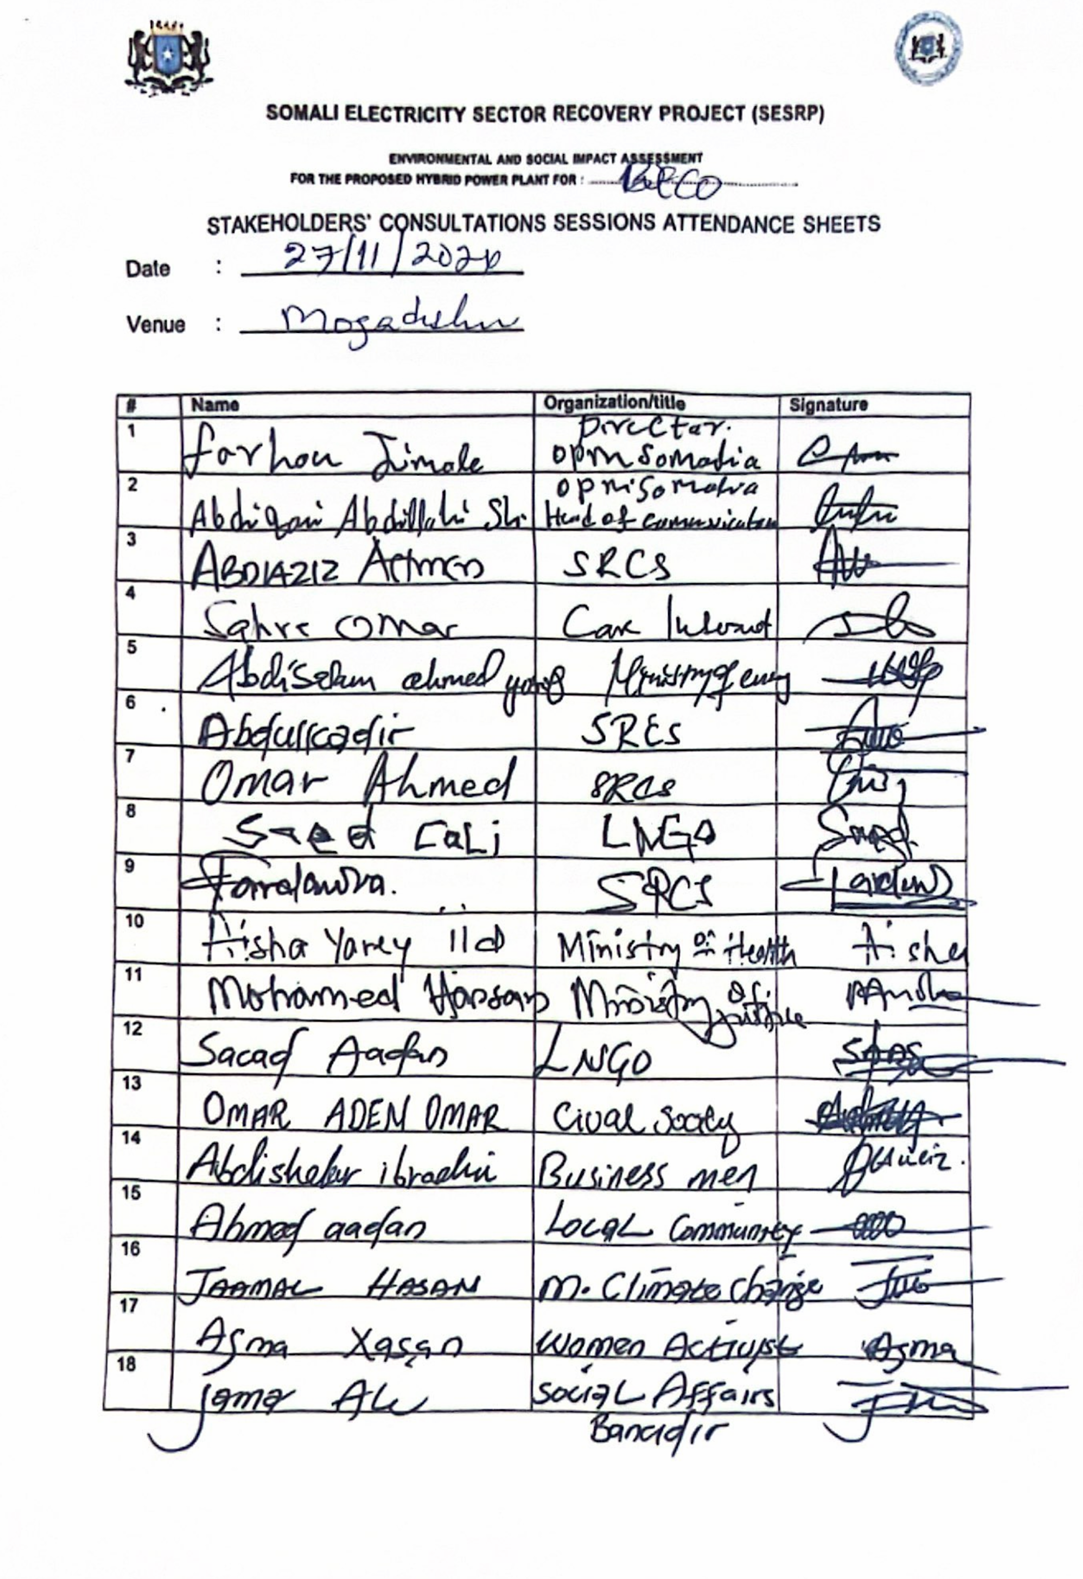 SOMALI ELECTRICITY SECTOR RECOVERY PROJECT (SESRP)
ENVIRONMENTAL AND SOCIAL IMPACT ASSESSMENT
FOR THE PROPOSED HYBRID POWER PLANT FOR : BECO
STAKEHOLDERS' CONSULTATIONS SESSIONS ATTENDANCE SHEETS
Date : 27/11/2024
Venue : Mogadishu
# Name Organization/title Signature
1 Farhan Jimale Director. OPM Somalia
2 Abdiqani Abdillahi Sh. OPM Somalia Head of communication
3 ABDIAZIZ SRCS
4 Sahra Omar Care
5 Abdisalam ahmed Ministry of
6 Abdulkadir SRCS
7 Omar Ahmed SRCS
8 Saed Cali LNGO Saed
9 SRCS
10 Aisha Yarey Ministry of Health Aisha
11 Mohamed Hassan Ministry of Justice
12 Sacad Aadan LNGO
13 OMAR ADEN OMAR Cival Socity
14 Abdishakur ibrahi Business men
15 Ahmed aadan Local Community
16 JAAMAC HASAN M. Climate Change
17 Asma Xasan Women Activist Asma
18 Jama Ali Social Affairs
Banadir